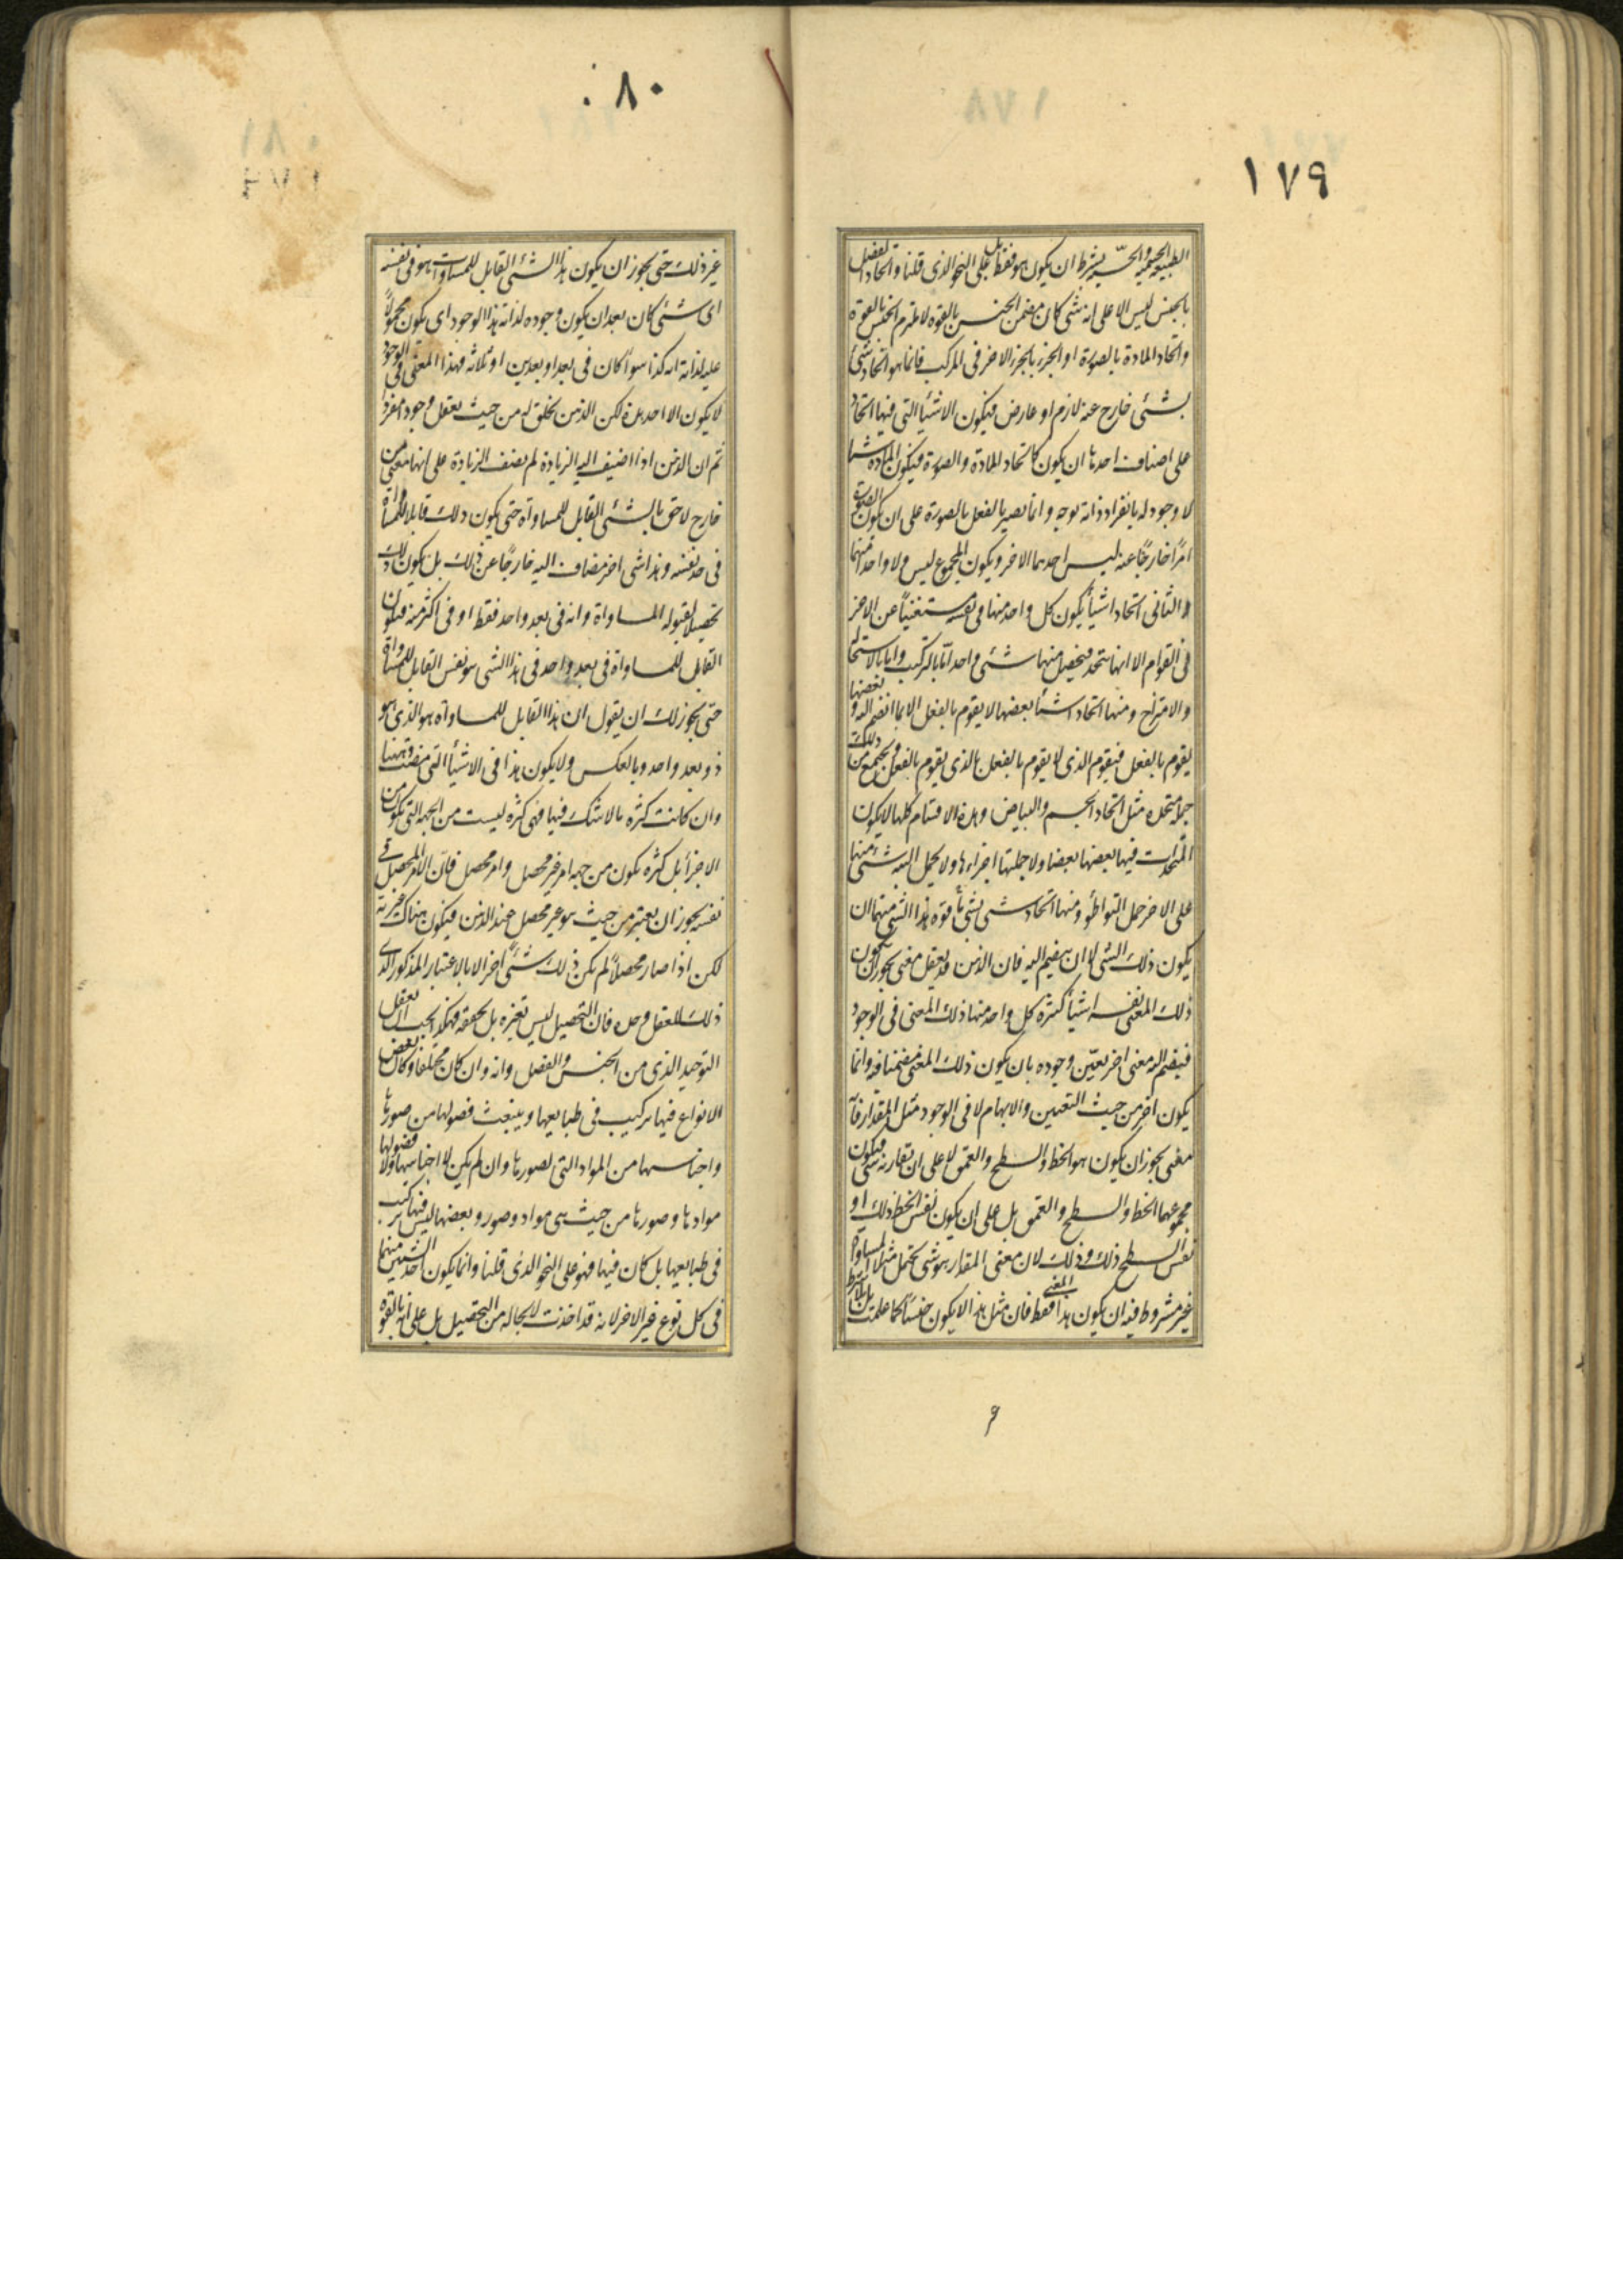 ١٧٩
الطبيعة الجنسية والحسية بشرط ان يكون هو فقط بل على النحو الذى قلنا واتحاد الفصل
بالجنس ليس الا على انه شى كان متضمن الجنس بالقوه لا ملتزم الجنس بالقوة
واتحاد المادة بالصورة او الجزء بالجزء الاخر فى المركب فانما هو اتحاد شئ
بشئى خارج عنه لازم او عارض فيكون الاشيأ التى فيها اتحاد
على اصناف احدها ان يكون كاتحاد المادة والصورة فيكون المادة شيئا
لا وجود له بانفراد ذاته بوجه وانما يصير بالفعل بالصورة على ان يكون الصورة
امرًا خارجًا عنه ليس احدهما الاخر ويكون المجموع ليس ولا واحد منهما
والثانى اتحاد اشيأ يكون كل واحد منها فى نفسه مستغنيًا عن الاخر
فى القوام الا انها تتحد فيحصل منها شئى واحد اما بالتركيب واما بالاستحالة
والامتزاج ومنها اتحاد اشيأ بعضها لا يقوم بالفعل الا بما انضم اليه وبعضها
يقوم بالفعل فيقوم الذى لا يقوم بالفعل بالذى يقوم بالفعل ويجتمع من ذلك
جملة متحدة مثل اتحاد الجسم والبياض وهذه الاقسام كلها لا يكون
المتحدات فيها بعضها بعضا ولا جملتها اجزاءها ولا يحمل البته شئ منها
على الاخر حمل التواطئو ومنها اتحاد شى بشى قوة هذا الشى منهما ان
يكون ذلك الشى لا ان ينضم اليه فان الذهن قد يعقل معنى يجوز ان يكون
ذلك المعنى نفسه اشيأ كثيرة كل واحد منها ذلك المعنى فى الوجود
فينضم اليه معنى اخر يعين وجوده بان يكون ذلك المعنى مضمنا فيه وانما
يكون اخر من حيث التعيين والابهام لا فى الوجود مثل المقدار فانه
معنى يجوز ان يكون هو الخط والسطح والعمق لا على ان تقارنه شى فيكون
مجموعهما الخط والسطح والعمق بل على ان يكون نفس الخط ذلك او
نفس السطح ذلك وذلك لان معنى المقدار هو شى يحتمل مثلا المساواة
غير مشروط فيه ان يكون هذا المعنى فقط فان مثل هذا لا يكون جنسًا كما علمت بل بلا شرط
٦
٨٠
غير ذلك حتى يجوز ان يكون هذا الشئى القابل للمساوات هو فى نفسه
اى شئى كان بعد ان يكون وجوده لذاته هذا الوجود اى يكون محمولًا
عليه لذاته انه كذا سواً كان فى بعد او بعدين او ثلاثه فهذا المعنى فى الوجود
لا يكون الا احد هذه لكن الذهن يخلق له من حيث يعقل وجودا مفردا
ثم ان الذهن اذا اضيف اليه الزيادة لم يضف الزيادة على انها معنى من
خارج لاحق بالشئى القابل للمساواة حتى يكون ذلك قابلا للمساواة
فى حد نفسه وهذا شى اخر مضاف اليه خارجًا عن ذلك بل يكون ذلك
تحصيلا لقبوله المساواة وانه فى بعد واحد فقط او فى اكثر منه فيكون
القابل للمساواة فى بعد واحد فى هذا الشى هو نفس القابل للمساواة
حتى يجوز لك ان يقول ان هذا القابل للمساواة هو الذى هو
ذو بعد واحد وبالعكس ولا يكون هذا فى الاشيأ التى مضت وههنا
وان كانت كثرة بلا شك فيها فهى كثرة ليست من الجهة التى تكون من
الاجزأ بل كثرة يكون من جهة امر غير محصل وامر محصل فان الامر المحصل فى
نفسه يجوز ان يعتبر من حيث هو غير محصل عند الذهن فيكون هناك غيرية
لكن اذا صار محصلًا لم يكن ذلك شئًى اخر الا بالاعتبار المذكور الذى
ذلك للعقل وحده فان التحصيل ليس تغيره بل يحققه فهكذا يجب ان يعقل
التوحيد الذى من الجنس والفصل وانه وان كان مختلفا وكان بعض
الانواع فيها تركيب فى طبايعها وينبعث فصولها من صورها
واجناسها من المواد التى لصورها وان لم يكن لا اجناسها ولا فصولها
موادها وصورها من حيث هى مواد وصور وبعضها ليس فيها تركيب
فى طبايعها بل كان فيها فهو على النحو الذى قلنا وانما يكون احد الشيئين منهما
فى كل نوع غير الاخر لانه قد اخذت لا بحاله من التحصيل بل على انه بالقوة